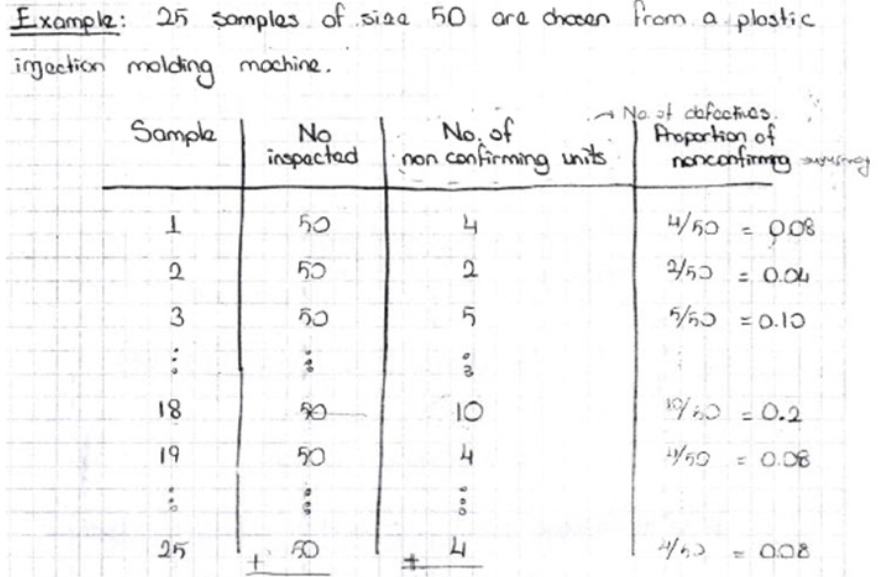 Example: 25 samples of size 50 are chosen from a plastic
injection molding machine.
→ No. of defectives.
Sample No inspected No. of non confirming units Proportion of nonconfirming
1 50 4 4/50 = 0.08
2 50 2 2/50 = 0.04
3 50 5 5/50 = 0.10
18 50 10 10/50 = 0.2
19 50 4 4/50 = 0.08
25 + 50 + 4 4/50 = 0.08